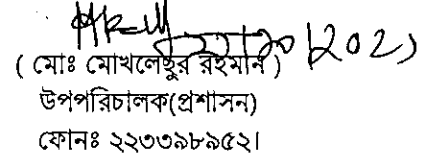 ( মোঃ মোখলেছুর রহমান )
উপপরিচালক(প্রশাসন)
ফোনঃ ২২৩৩৯৮৯৫২।